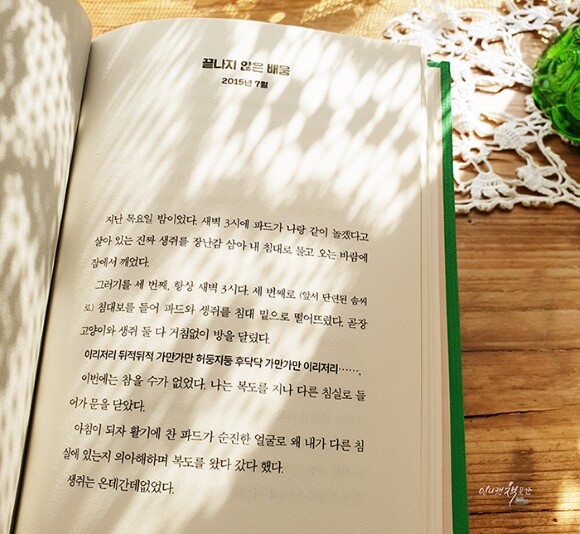 끝나지 않은 배움
2015년 7월
지난 목요일 밤이었다. 새벽 3시에 파드가 나랑 같이 놀겠다고
살아 있는 진짜 생쥐를 장난감 삼아 내 침대로 물고 오는 바람에
잠에서 깨었다.
그러기를 세 번째, 항상 새벽 3시다. 세 번째로 (앞서 단련된 솜씨
로) 침대보를 들어 파드와 생쥐를 침대 밑으로 떨어뜨렸다. 곧장
고양이와 생쥐 둘 다 거침없이 방을 달렸다.
이리저리 뒤적뒤적 가만가만 허둥지둥 후닥닥 가만가만 이리저리……,
이번에는 참을 수가 없었다. 나는 복도를 지나 다른 침실로 들
어가 문을 닫았다.
아침이 되자 활기에 찬 파드가 순진한 얼굴로 왜 내가 다른 침
실에 있는지 의아해하며 복도를 왔다 갔다 했다.
생쥐는 온데간데없었다.